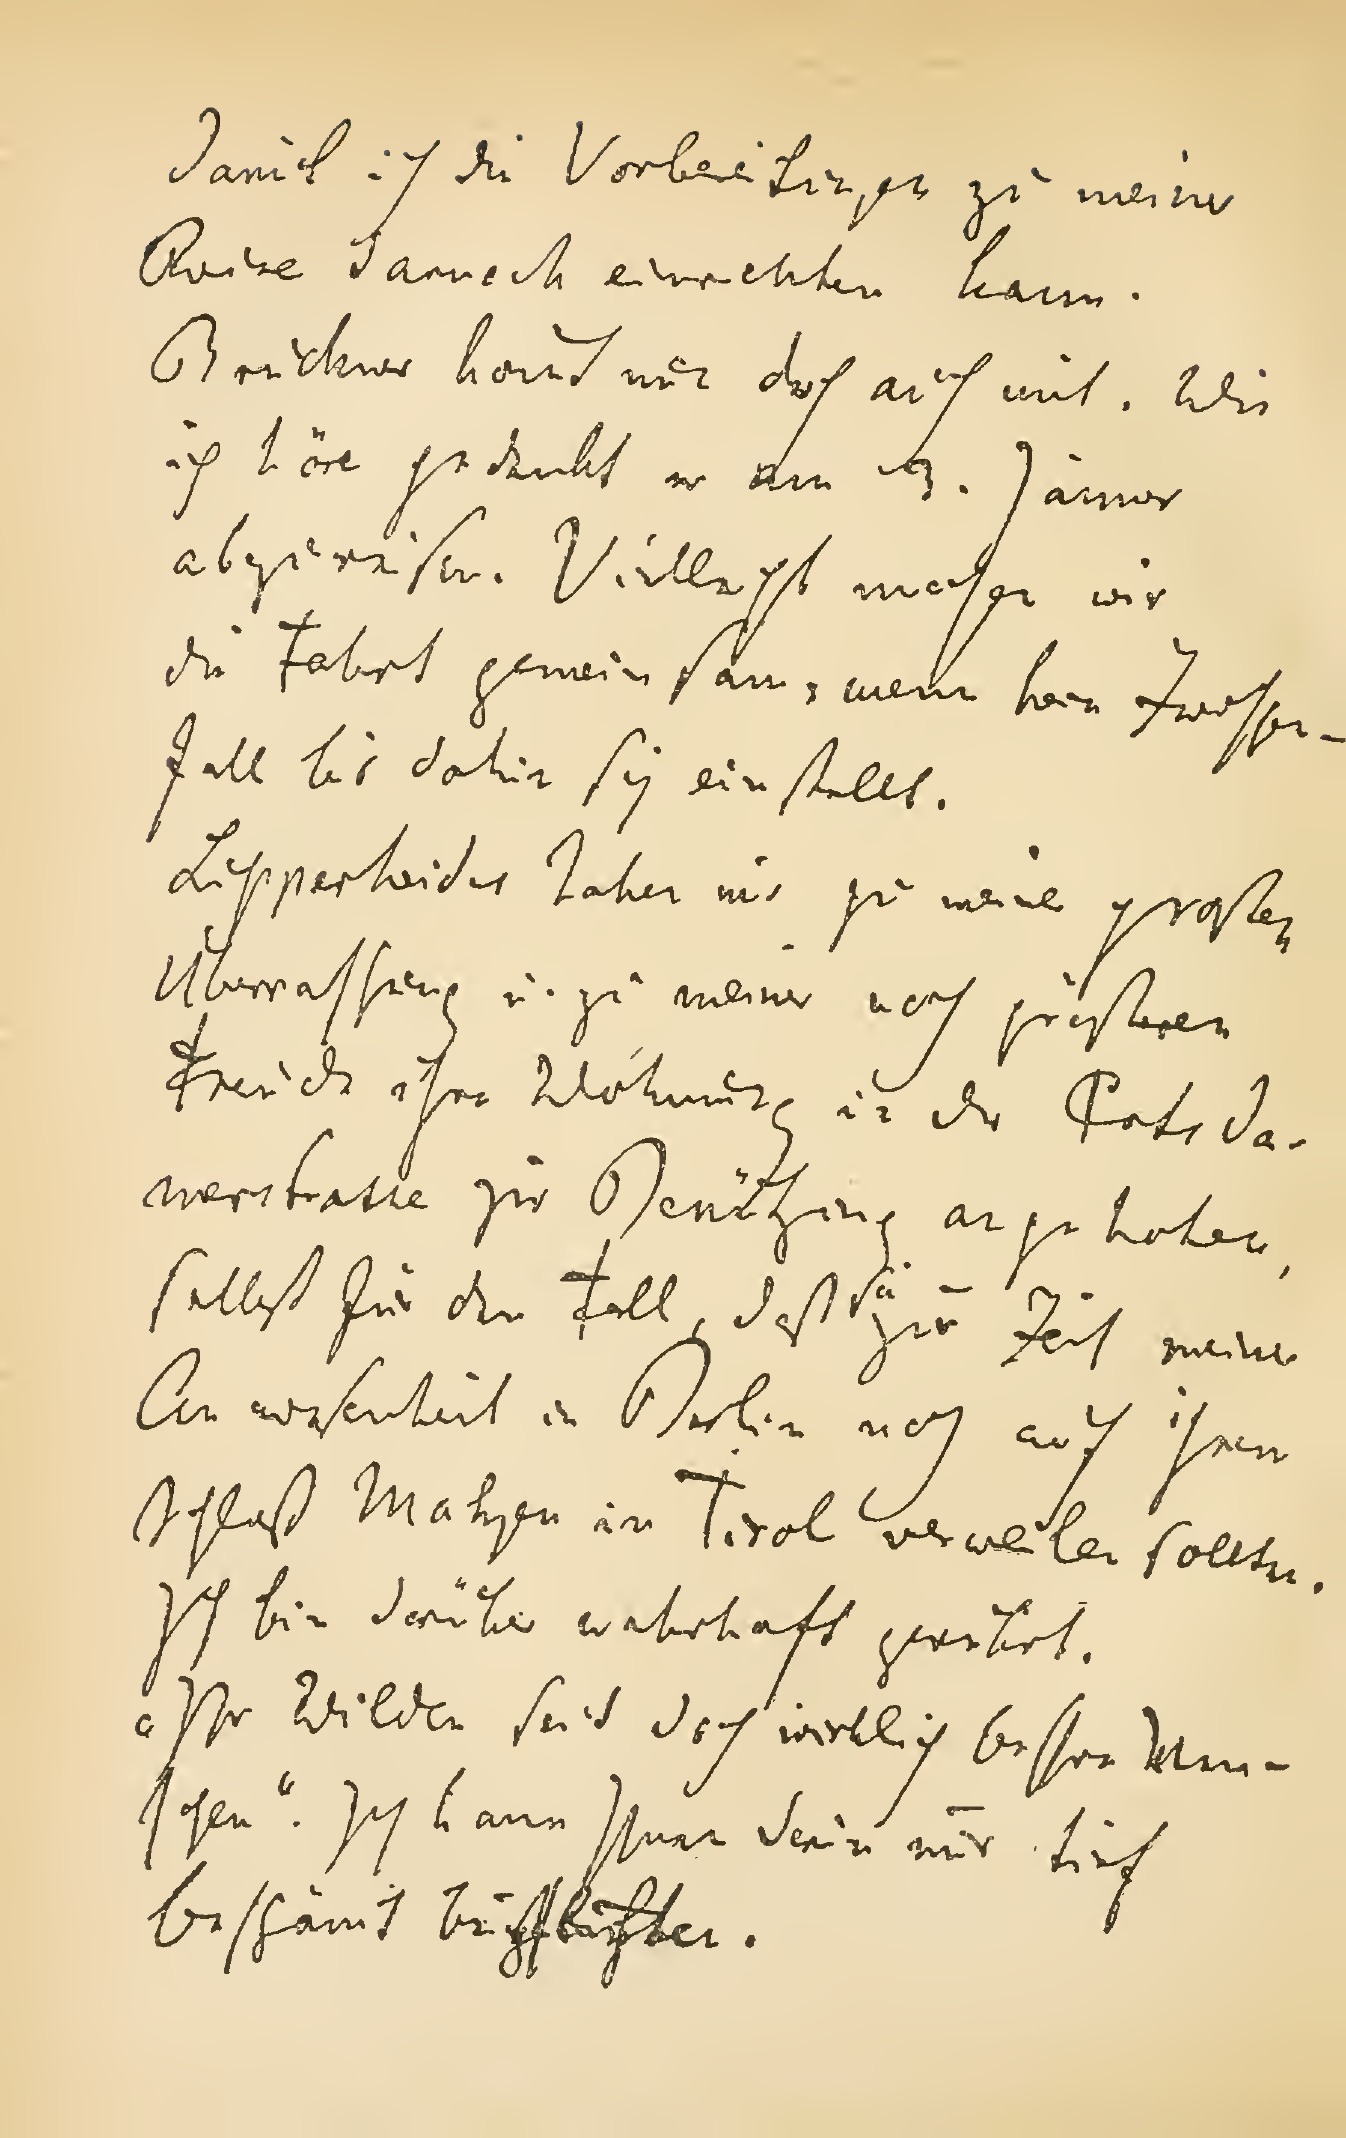 damit ich die Vorbereitungen zu meiner
Reise darnach einrichten kann.
Bruckner kom̅t nun doch auch mit. Wie
ich höre gedenkt er am 3. Jänner
abzureisen. Vielleicht machen wir
die Fahrt gemeinsam, wenn kein Zwischen-
fall bis dahin sich einstellt.
Lipperheides haben mir zu meiner großen
Überraschung u. zu meiner noch größeren
Freude ihre Wohnung in der Potsda-
merstrasse zur Benützung angeboten,
selbst für den Fall, daß sie zur Zeit meiner
Anwesenheit in Berlin noch auf ihrem
Schloß Matzen in Tirol verweilen sollten.
Ich bin darüber wahrhaft gerührt.
„Ihr Wilden seid doch wirklich bessre Men-
schen“. Ich kann Ihnen darin nur tief
beschämt beipflichten.